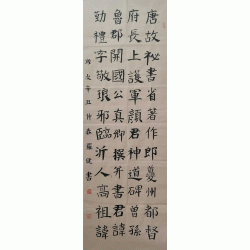 唐故秘書省著作郎夔州都督
府長上護軍顏君神道碑曾孫
魯郡開國公真卿撰并書君諱
勤禮字敬琅邪臨沂人高祖諱
辛丑仲春羅書